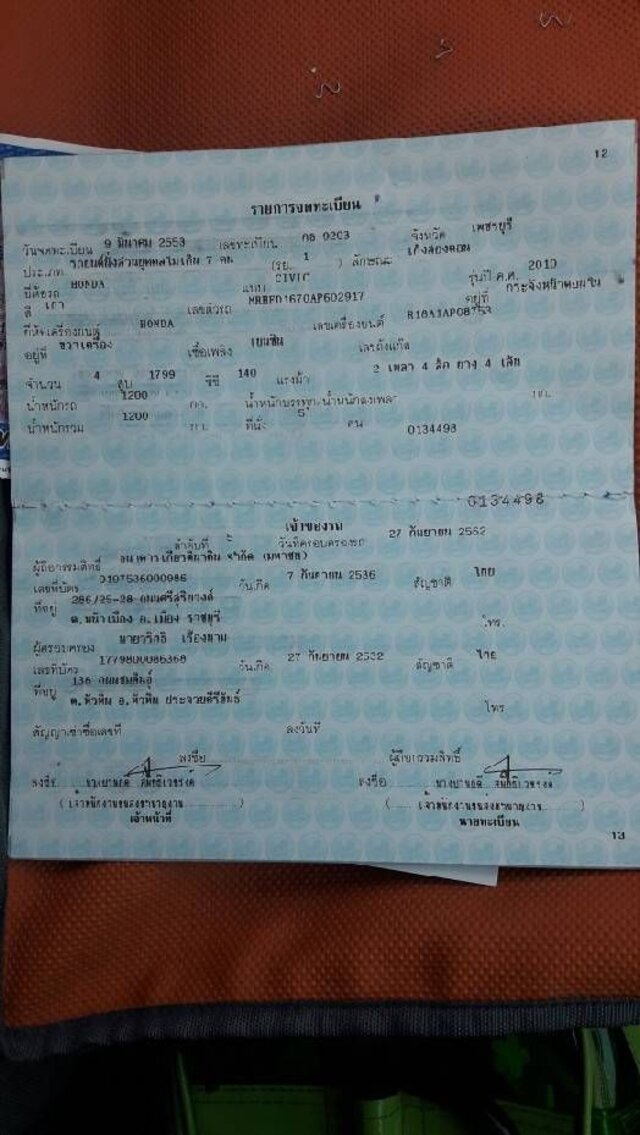 12
รายการจดทะเบียน
วันจดทะเบียน 9 มีนาคม 2553 เลขทะเบียน 0203 จังหวัด เพชรบุรี
ประเภท รถยนต์นั่งส่วนบุคคลไม่เกิน 7 คน (รย. 1 ) ลักษณะ เก๋งสองตอน
ยี่ห้อรถ HONDA แบบ CIVIC รุ่นปี ค.ศ. 2010
สี เทา เลขตัวรถ อยู่ที่
ยี่ห้อเครื่องยนต์ HONDA เลขเครื่องยนต์
อยู่ที่ ขวาเครื่อง เชื้อเพลิง เบนซิน เลขถังแก๊ส
จำนวน 4 สูบ 1799 ซีซี 140 แรงม้า 2 เพลา 4 ล้อ ยาง 4 เส้น
น้ำหนักรถ 1200 กก. น้ำหนักบรรทุก/น้ำหนักลงเพลา กก.
น้ำหนักรวม 1200 กก. ที่นั่ง 5 คน 0134498
0134498
เจ้าของรถ
ลำดับที่ วันที่ครอบครองรถ 27 กันยายน 2562
ผู้ถือกรรมสิทธิ์ ธนาคารเกียรตินาคิน จำกัด (มหาชน)
เลขที่บัตร 0107536000986 วันเกิด 7 กันยายน 2536 สัญชาติ ไทย
ที่อยู่ 286/25-28 ถนนศรีสุริยวงศ์
ต.หน้าเมือง อ.เมือง ราชบุรี โทร.
ผู้ครอบครอง เรืองนาม
เลขที่บัตร 1779800086368 วันเกิด 27 กันยายน 2532 สัญชาติ ไทย
ที่อยู่ 136 ถนนชมสินธุ์
ต.หัวหิน อ.หัวหิน ประจวบคีรีขันธ์ โทร
สัญญาเช่าซื้อเลขที่ ลงวันที่
ลงชื่อ ผู้ถือกรรมสิทธิ์
ลงชื่อ ลงชื่อ
เจ้าหน้าที่ นายทะเบียน
13